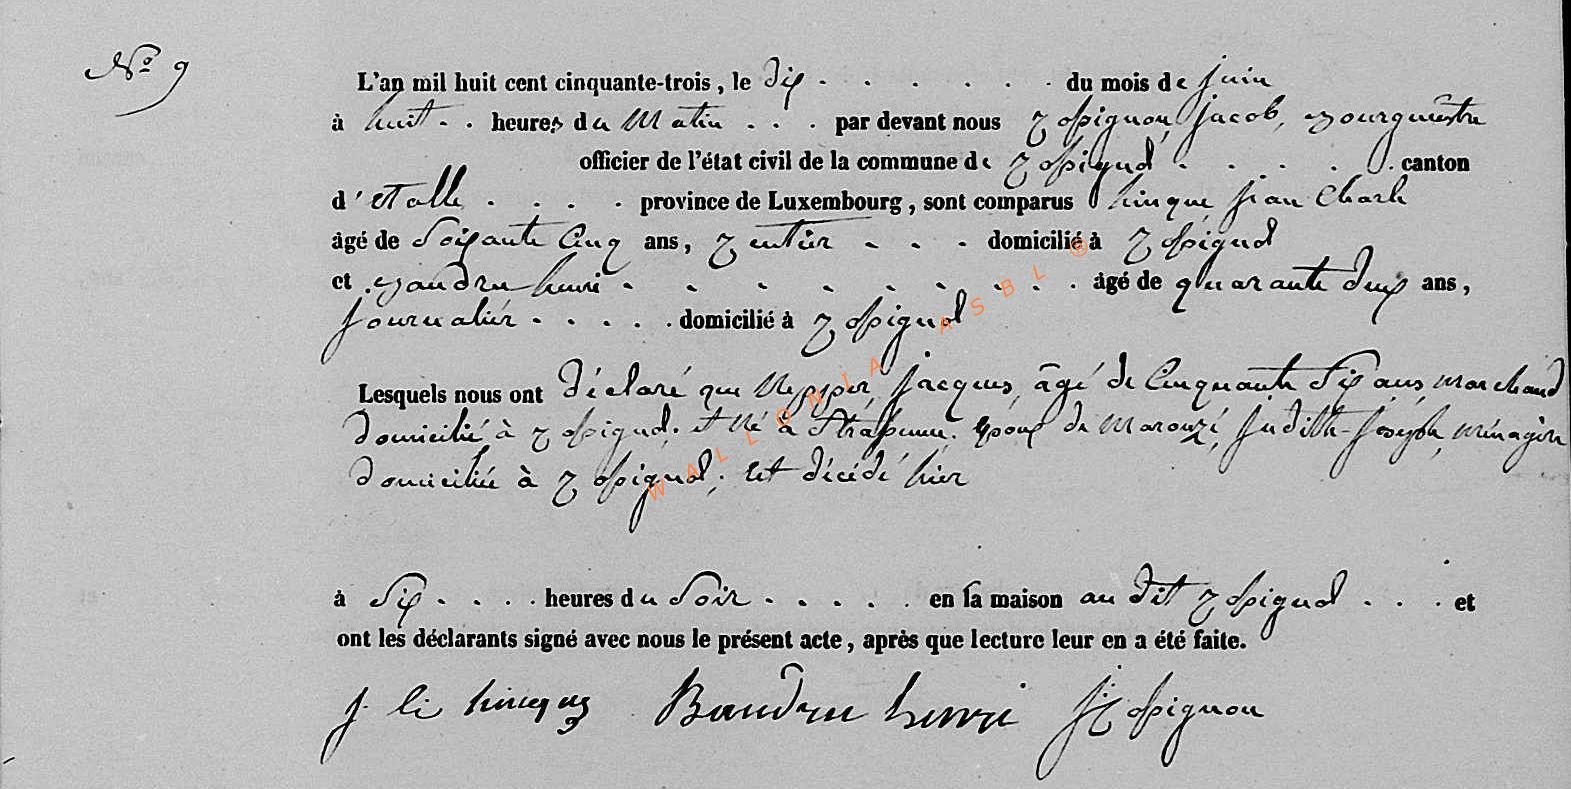 No 9
L'an mil huit cent cinquante-trois, le dix . . . . . . du mois de juin
à huit . . heures du Matin . . . par devant nous Rossignon, Jacob, Bourguestre
officier de l'état civil de la commune de Rossignol . . . . . canton
d'Etalle . . . . province de Luxembourg, sont comparus hinque, Jean Charle
âgé de Soixante Cinq ans, Rentier . . . domicilié à Rossignol
et Baudru henri . . . . . . . . . . âgé de quarante deux ans,
Journalier . . . . . domicilié à Rossignol
Lesquels nous ont déclaré que Nepper, Jacques, âgé de Cinquante Six ans, marchand
domicilié à Rossignol, et Né à époux de Marouzé, Judith-Joseph, ménagère
domiciliée à Rossignol, Est décédé hier
à Six . . . . heures du Soir . . . . . en sa maison au dit Rossignol . . . et
ont les déclarants signé avec nous le présent acte, après que lecture leur en a été faite.
J. Baudru henri J. Rossignon
WALLONIA ASBL ®